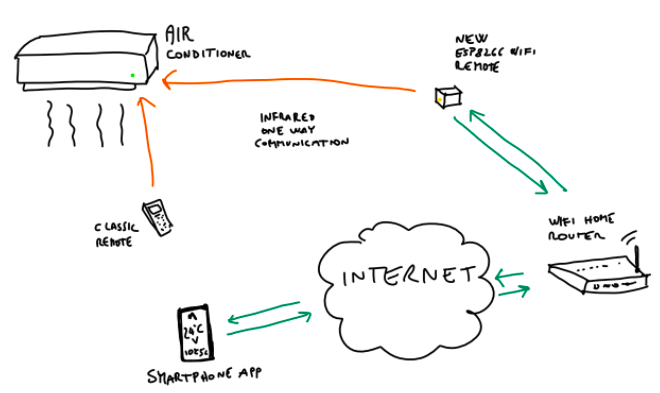 AIR
CONDITIONER
NEW
ESP8266 WIFI
REMOTE
INFRARED
ONE WAY
COMMUNICATION
CLASSIC
REMOTE
WIFI HOME
ROUTER
INTERNET
24°C
SMARTPHONE APP